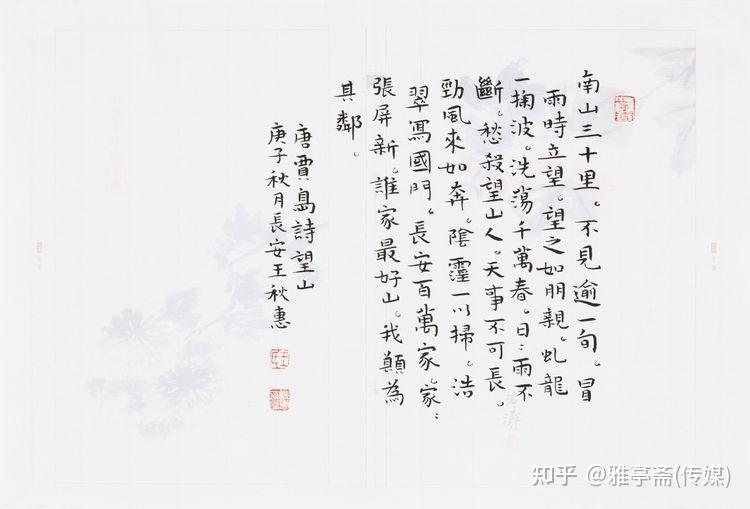 南山三十里。不見逾一旬。冒
雨時立望。望之如朋親。虬龍
一掬波。洗蕩千萬春。日〻雨不
斷。愁殺望山人。天事不可長。
勁風來如奔。陰霪一以掃。浩
翠寫國門。長安百萬家。家〻
張屏新。誰家最好山。我顛為
其鄰。
唐賈島詩望山
庚子秋月長安王秋惠
知乎 @雅亭斋(传媒)